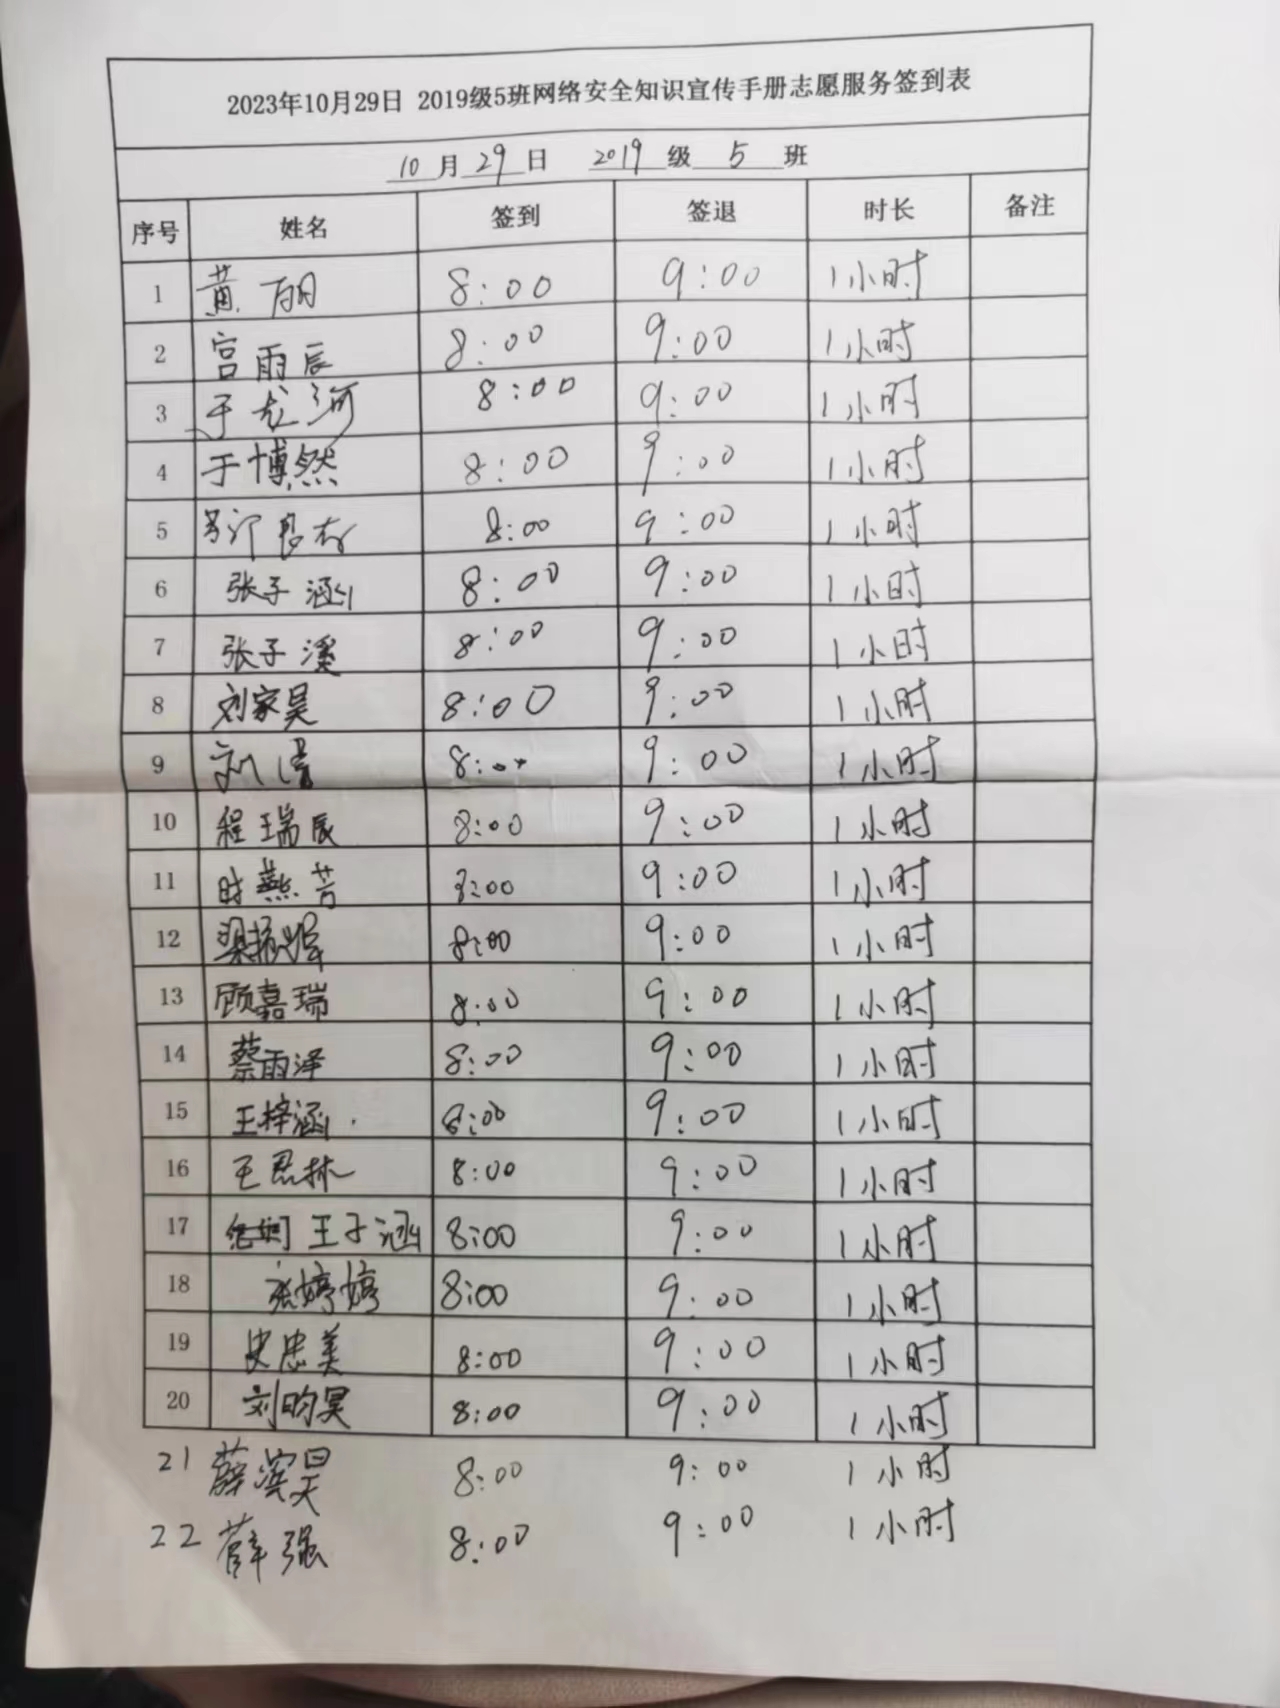 2023年10月29日 2019级5班网络安全知识宣传手册志愿服务签到表
10月29日 2019级5班
序号 姓名 签到 签退 时长 备注
1 黄丽 8:00 9:00 1小时
2 宫雨辰 8:00 9:00 1小时
3 于龙河 8:00 9:00 1小时
4 于博然 8:00 9:00 1小时
5 8:00 9:00 1小时
6 张子涵 8:00 9:00 1小时
7 张子溪 8:00 9:00 1小时
8 刘家昊 8:00 9:00 1小时
9 8:00 9:00 1小时
10 程瑞辰 8:00 9:00 1小时
11 时燕芳 8:00 9:00 1小时
12 8:00 9:00 1小时
13 顾嘉瑞 8:00 9:00 1小时
14 蔡雨泽 8:00 9:00 1小时
15 王梓涵 8:00 9:00 1小时
16 王君林 8:00 9:00 1小时
17 王子涵 8:00 9:00 1小时
18 张婷婷 8:00 9:00 1小时
19 史忠美 8:00 9:00 1小时
20 刘昀昊 8:00 9:00 1小时
21 薛滨昊 8:00 9:00 1小时
22 薛强 8:00 9:00 1小时